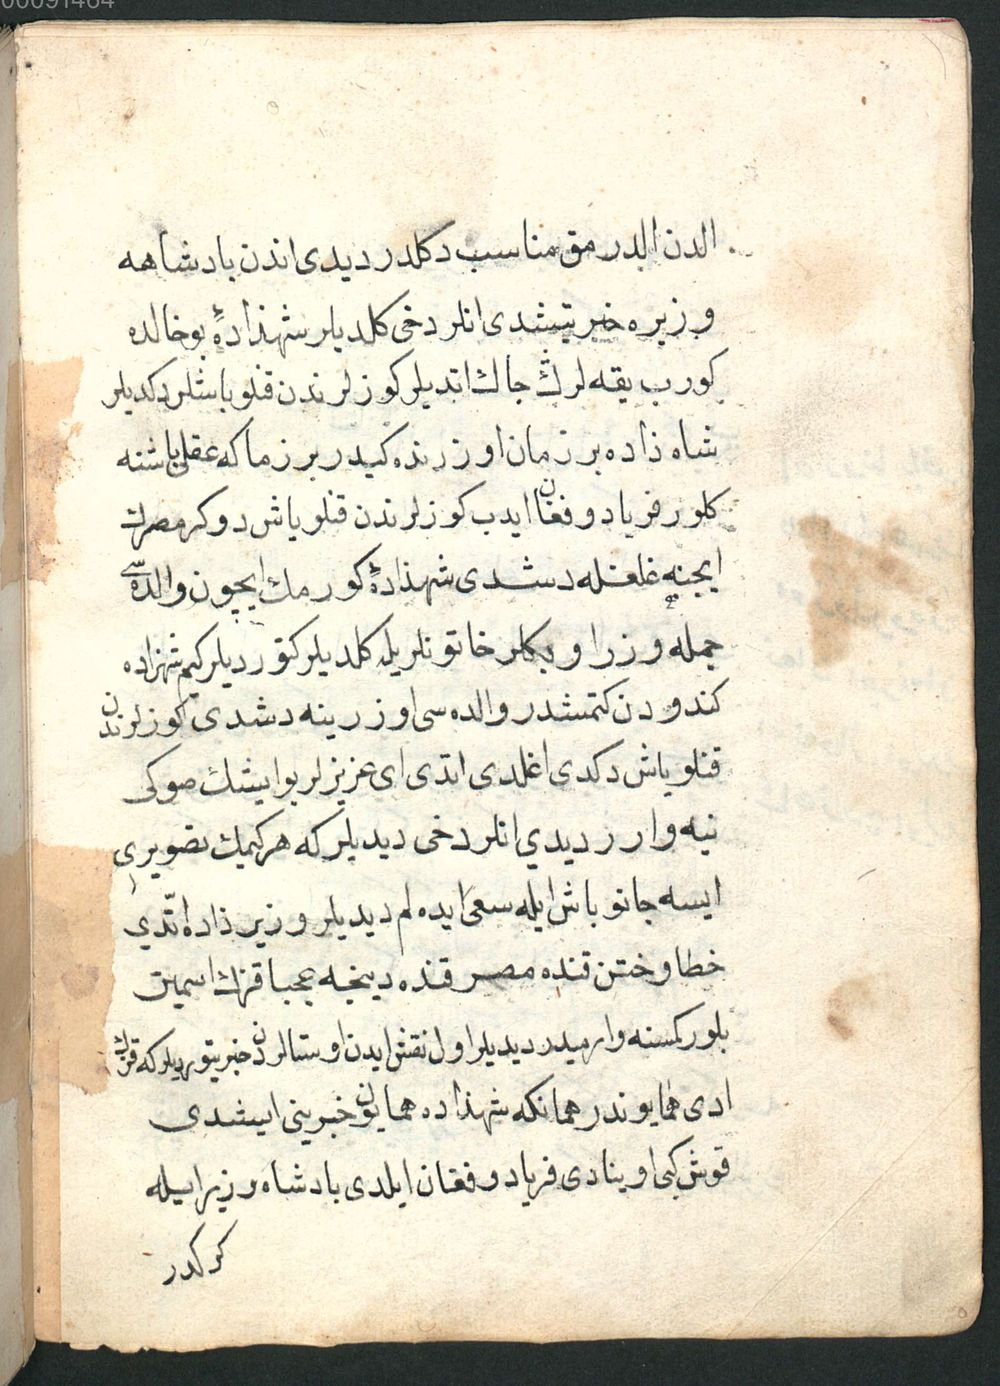 00091464
الدن الدرمق مناسب دكلدر ديدى اندن بادشاهه
وزيره خبر يتيشدى انلر دخى كلديلر شهذادهٔ بو خالده
كورب يقه لرڭ جاك اتديلر كوزلرندن قنلو ياشلر دكديلر
شاه زاده بر زمان اوزرنده كيدر بر زما كه عقلى باشنه
كلور فرياد و فغان ايدب كوزلرندن قنلو ياش دوكر مصرڭ
ايجنه غلغله دشدى شهذادهٔ كورمك ايچون والده سى
جمله وزرا و بكلر خاتونلريله كلديلر كورديلر كيم شهزاده
كندودن كتمشدر والده سى اوزرينه دشدى كوزلرندن
قنلو ياش دكدى اغلدى اتدى اى عزيزلر بو ايشك صوكى
نيه وارر ديدي انلر دخى ديديلر كه هر كيمك تصويرى
ايسه جانو باش ايله سعى ايده لم ديديلر وزير ذاده اتدي
خطا و ختن قنده مصر قنده دينجه عجبا قزك اسمين
بلور كمسنه وارميدر ديديلر اول نقش ايدن اوستالردن خبر يتورديلر كه قزڭ
ادى همايوندر همانكه شهذاده همايون خبرينى ايشدى
قوش كبى اوينادى فرياد و فغان ايلدى بادشاه وزير ايله
كركدر